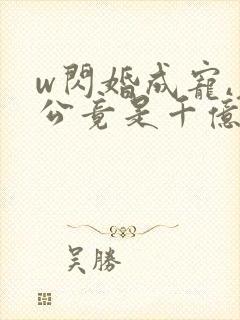 w閃婚成寵,
公竟是千億
吴勝